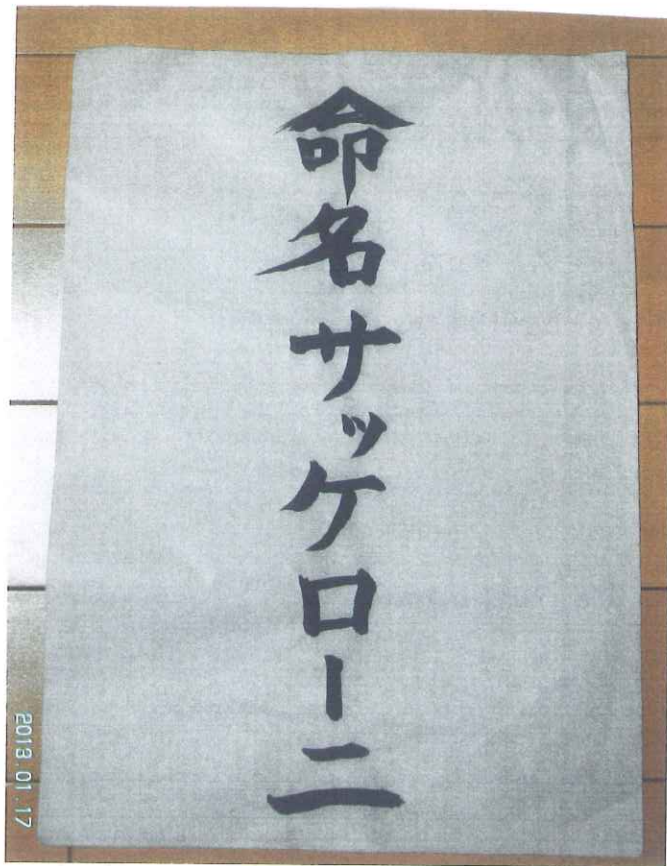 命名サッケローニ
2013.01.17